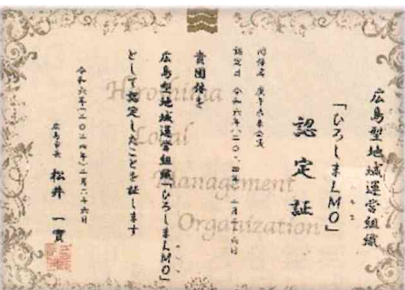 広島型地域運営組織
「ひろしまLMO」
認定証
団体名
認定日 令和六年
貴団体を
広島型地域運営組織「ひろしまLMO」
として認定したことを証します
令和六年(二〇二四年)二月二六日
広島市長 松井 一實
Hiroshima
Local
Management
Organization